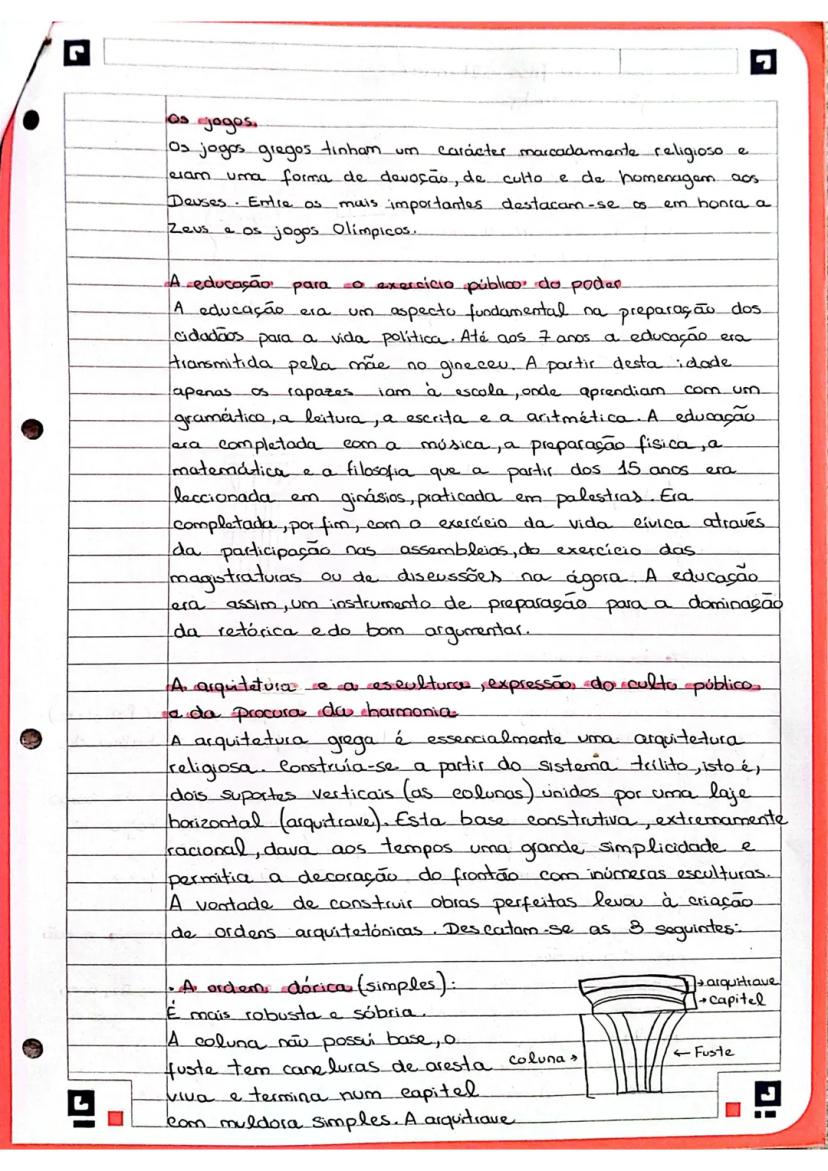 Os jogos.
Os jogos gregos tinham um carácter marcadamente religioso e
eram uma forma de devoção, de culto e de homenagem aos
Deuses. Entre os mais importantes destacam-se os em honra a
Zeus e os jogos Olímpicos.
A educação para o exercício público do poder
A educação era um aspecto fundamental na preparação dos
cidadãos para a vida política. Até aos 7 anos a educação era
transmitida pela mãe no gineceu. A partir desta idade
apenas os rapazes iam à escola, onde aprendiam com um
gramático, a leitura, a escrita e a aritmética. A educação
era completada com a música, a preparação física, a
matemática e a filosofia que a partir dos 15 anos era
leccionada em ginásios, praticada em palestras. Era
completada, por fim, com o exercício da vida cívica através
da participação nas assembleias, do exercício das
magistraturas ou de discussões na ágora. A educação
era assim, um instrumento de preparação para a dominação
da retórica e do bom argumentar.
A arquitetura e a escultura, expressão do culto público
e da procura da harmonia
A arquitetura grega é essencialmente uma arquitetura
religiosa. Construía-se a partir do sistema trílito, isto é,
dois suportes verticais (as colunas) unidos por uma laje
horizontal (arquitrave). Esta base construtiva, extremamente
racional, dava aos tempos uma grande simplicidade e
permitia a decoração do frontão com inúmeras esculturas.
A vontade de construir obras perfeitas levou à criação
de ordens arquitetónicas. Descatam-se as 3 seguintes:
. A ordem dórica (simples):
É mais robusta e sóbria.
A coluna não possui base, o
fuste tem caneluras de aresta
viva e termina num capitel
com muldora simples. A arquitrave
→ arquitrave
→ capitel
coluna →
← Fuste